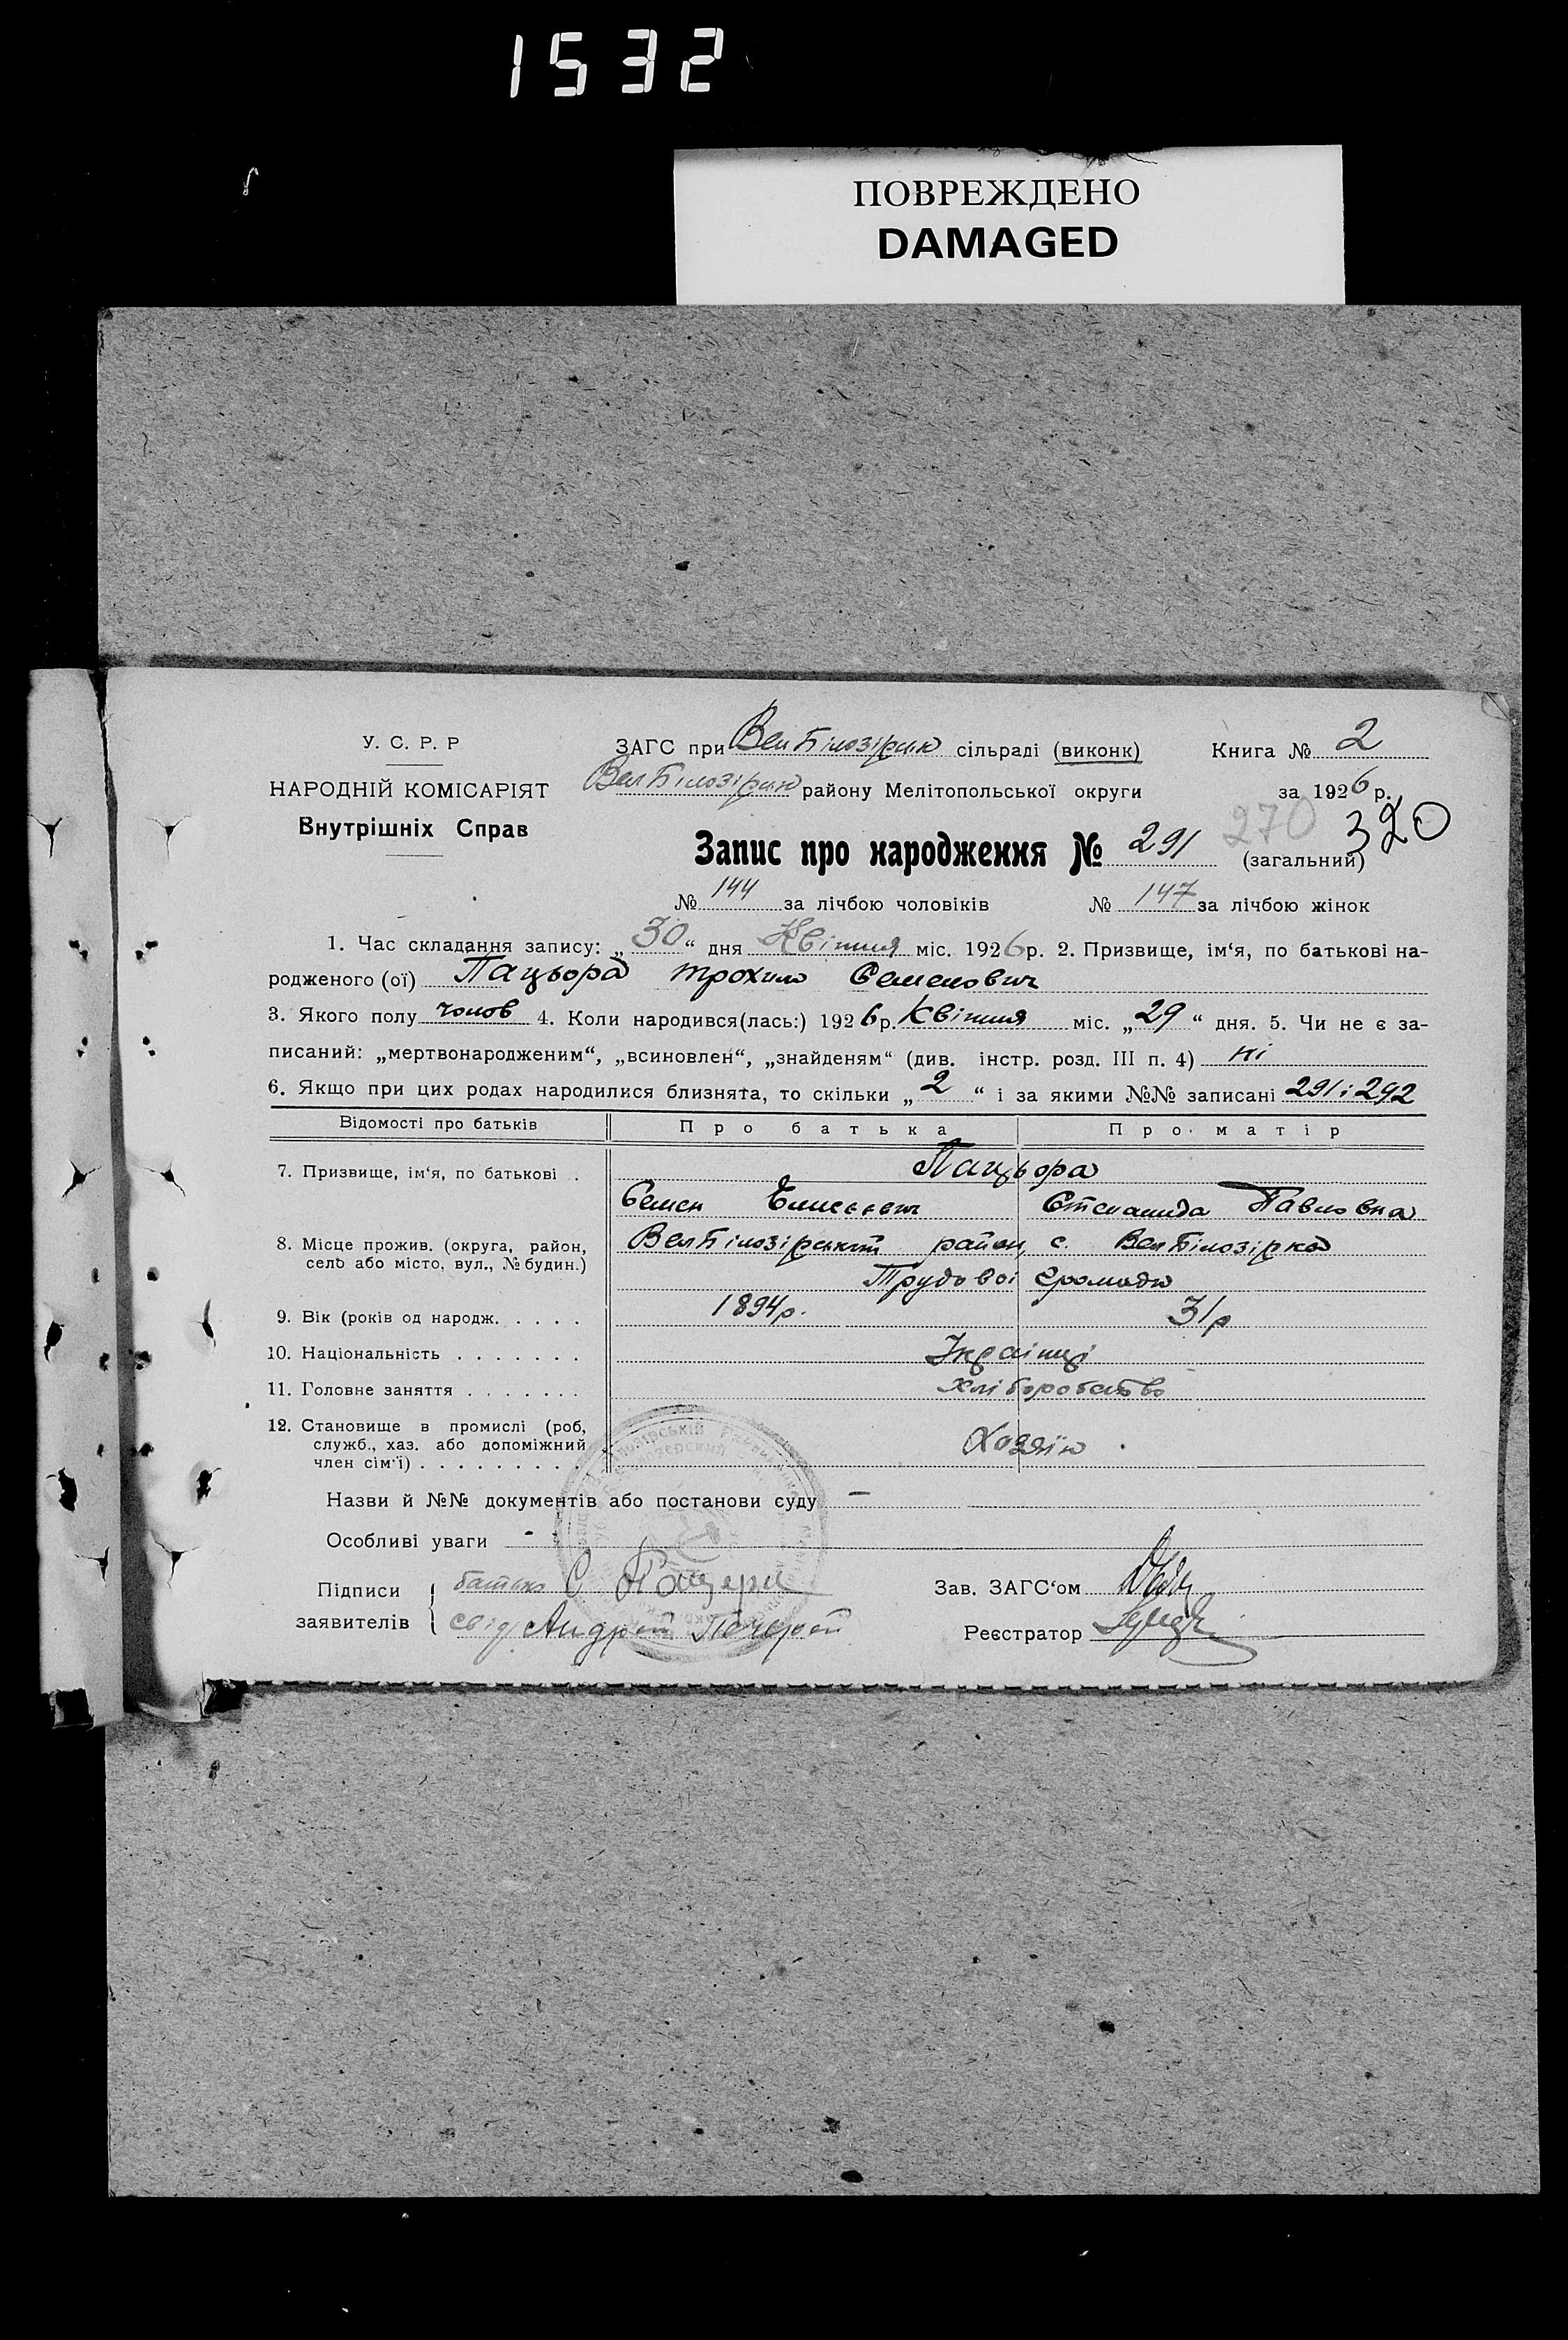 1532
ПОВРЕЖДЕНО
DAMAGED
У. С. Р. Р
НАРОДНІЙ КОМІСАРІЯТ
Внутрішніх Справ
ЗАГС при Вел Білозірск сільраді (виконк) Книга № 2
Вел Білозірск району Мелітопольської округи за 1926 р.
270 320
Запис про народження № 291 (загальний)
№ 144 за лічбою чоловіків № 147 за лічбою жінок
1. Час складання запису: „30“ дня Квітня міс. 1926 р. 2. Призвище, ім‘я, по батькові на-
родженого (ої) Пацьора Трохим Семенович
3. Якого полу чолов 4. Коли народився(лась:) 1926 р. Квітня міс. „29“ дня. 5. Чи не є за-
писаний: „мертвонародженим“, „всиновлен“, „знайденям“ (див. інстр. розд. III п. 4) ні
6. Якщо при цих родах народилися близнята, то скільки „2“ і за якими №№ записані 291 і 292
Відомості про батьків Про батька Про матір
7. Призвище, ім‘я, по батькові . Пацьора
Семен Елисеевич Степанида Павловна
8. Місце прожив. (округа, район,
село або місто, вул., № будин.)
Вел Білозірський район, с. Вел Білозірка
Трудової громади
9. Вік (років од народж. . . . . 1894р. 31р
10. Національність . . . . . . . Українці
11. Головне заняття . . . . . . . хліборобство
12. Становище в промислі (роб,
служб., хаз. або допоміжний
член сім‘ї) . . . . . . . . Хозяїн
Назви й №№ документів або постанови суду —
Особливі уваги -
Підписи
заявителів
батько С
свід Андрей
Зав. ЗАГС‘ом
Реєстратор